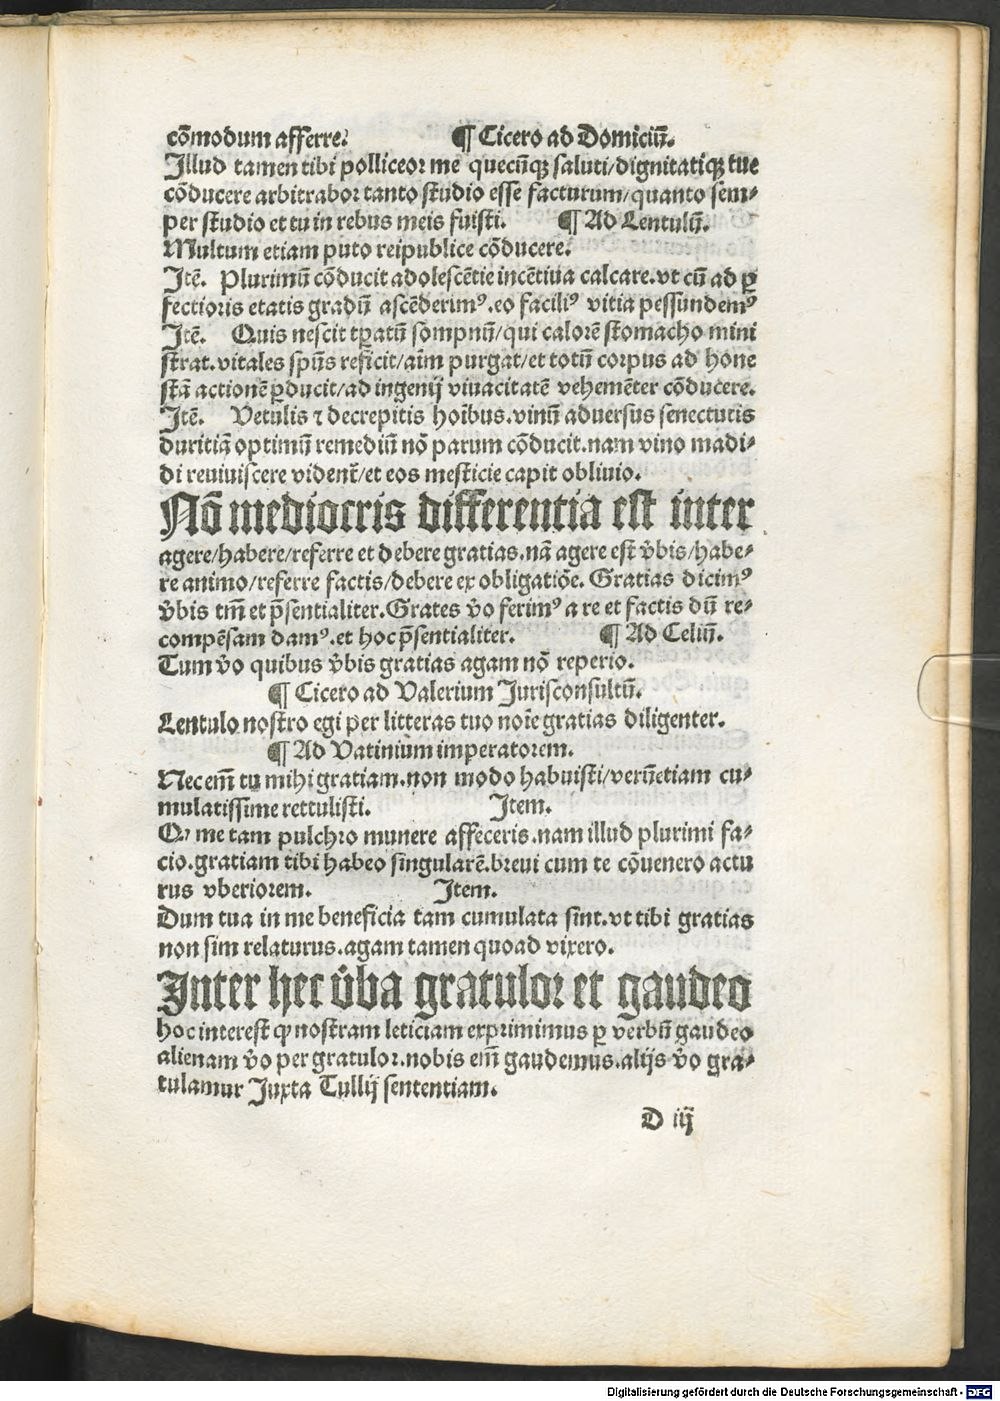 cōmodum afferre. ¶ Cicero ad Domiciū.
Illud tamen tibi polliceor me quecūqꝫ saluti/dignitatiqꝫ tue
cōducere arbitrabor tanto studio esse facturum/quanto sem⸗
per studio et tu in rebus meis fuisti. ¶ Ad Lentulū.
Multum etiam puto reipublice cōducere.
Itē. Plurimū cōducit adolescētie incētiua calcare.vt cū ad ꝑ
fectioris etatis gradū ascēderimꝰ.eo faciliꝰ vitia pessundemꝰ
Itē. Quis nescit tꝑatū sompnū/qui calorē stomacho mini
strat.vitales spūs reficit/aīm purgat/et totū corpus ad hone
stā actionē ꝑducit/ad ingenij viuacitatē vehemēter cōducere.
Itē. Vetulis ⁊ decrepitis hoībus.vinū aduersus senectutis
duritiā optimū remediū nō parum cōducit.nam vino madi⸗
di reuiuiscere vident̄/et eos mesticie capit obliuio.
Nō mediocris differentia est inter
agere/habere/referre et debere gratias.nā agere est v̄bis/habe⸗
re animo/referre factis/debere ex obligatiōe. Gratias dicimꝰ
v̄bis tm̄ et p̄sentialiter.Grates v̄o ferimꝰ a re et factis dū re⸗
compēsam damꝰ.et hoc p̄sentialiter. ¶ Ad Celiū.
Tum v̄o quibus v̄bis gratias agam nō reperio.
¶ Cicero ad Valerium Jurisconsultū.
Lentulo nostro egi per litteras tuo noīe gratias diligenter.
¶ Ad Vatinium imperatorem.
Nec em̄ tu mihi gratiam.non modo habuisti/verūetiam cu⸗
mulatissime rettulisti. Item.
Qꝛ me tam pulchro munere affeceris.nam illud plurimi fa⸗
cio.gratiam tibi habeo singularē.breui cum te cōuenero actu
rus vberiorem. Item.
Dum tua in me beneficia tam cumulata sint.vt tibi gratias
non sim relaturus.agam tamen quoad vixero.
Inter hec v̄ba gratulor et gaudeo
hoc interest ꝙ nostram leticiam exprimimus ꝑ verbū gaudeo
alienam v̄o per gratulor.nobis em̄ gaudemus.alijs v̄o gra⸗
tulamur Juxta Tullij sententiam.
D iij
Digitalisierung gefördert durch die Deutsche Forschungsgemeinschaft - DFG